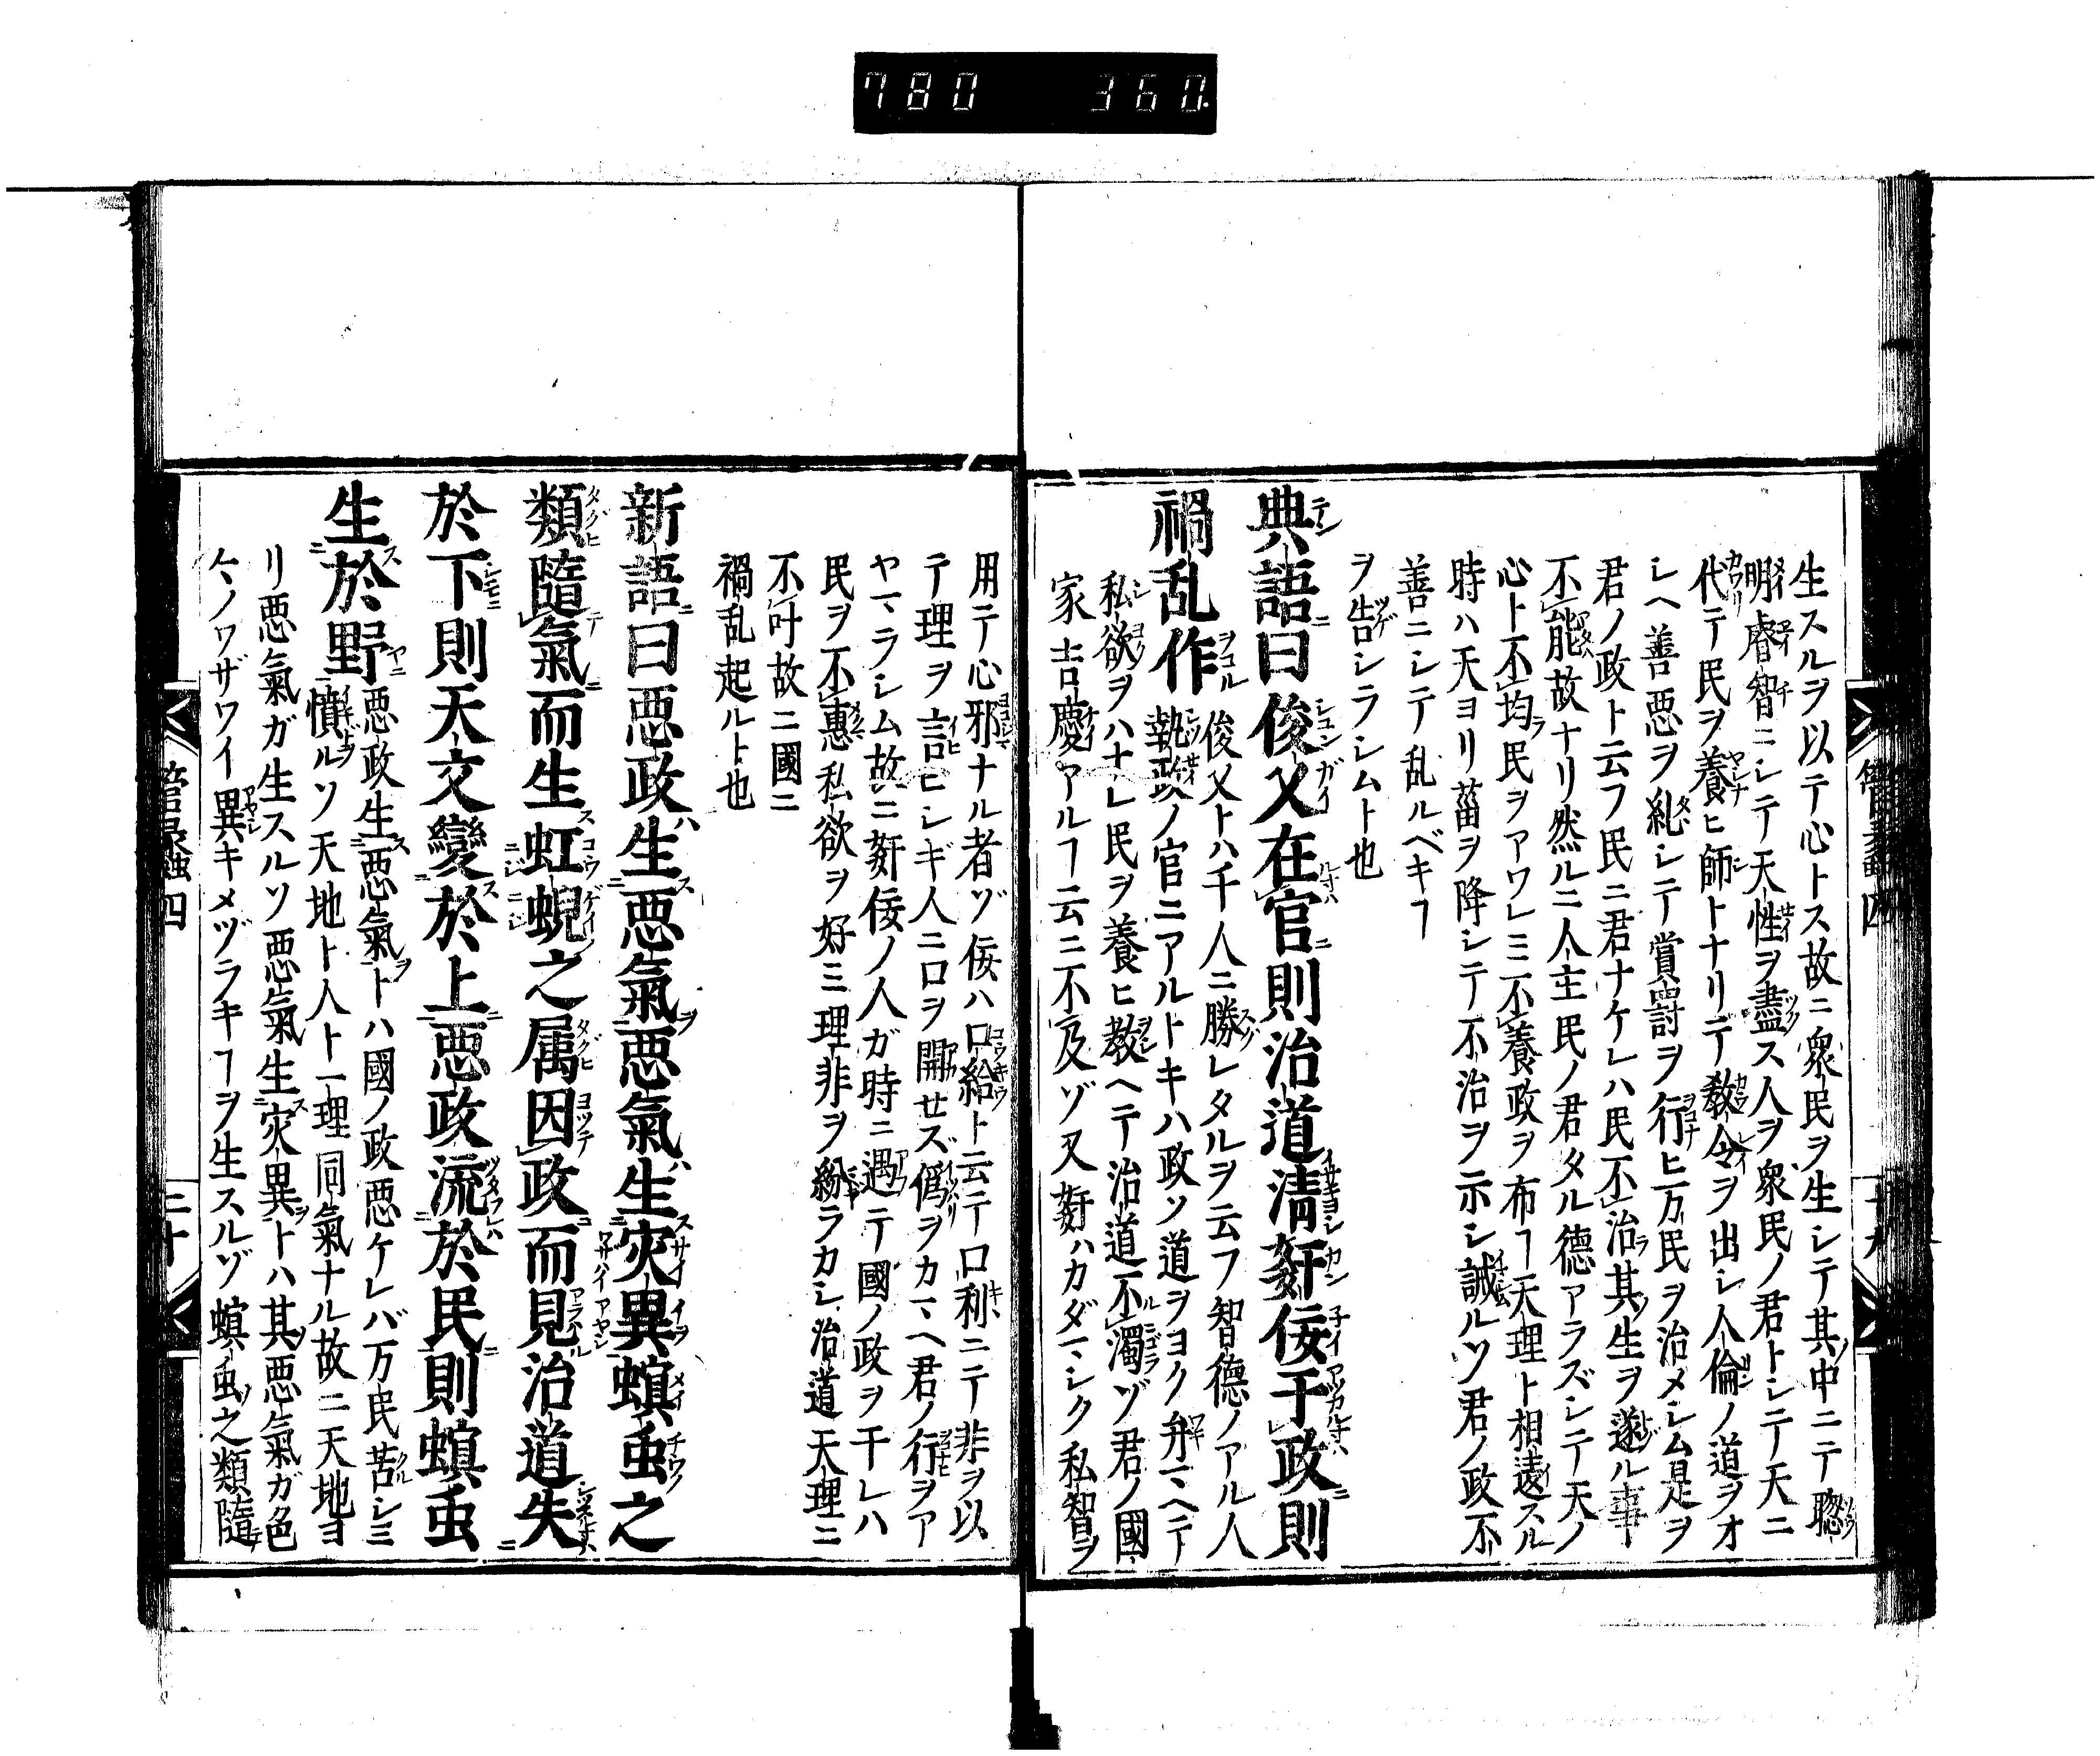 780 360
生スルヲ以テ心トス故ニ衆民ヲ生シテ其中ニテ聰
明睿智ニシテ天性ヲ盡ス人ヲ衆民ノ君トシテ天ニ
代テ民ヲ養ヒ師トナリテ教令ヲ出シ人倫ノ道ヲオ
シヘ善悪ヲ糺シテ賞罸ヲ行ヒ万民ヲ治メシム是ヲ
君ノ政ト云フ民ニ君ナケレハ民不治其生ヲ遂ル事
不能故ナリ然ルニ人主民ノ君タル德アラズシテ天ノ
心ト不均民ヲアワレミ不養政ヲ布ヿ天理ト相違スル
時ハ天ヨリ菑ヲ降シテ不治ヲ示シ誡ルソ君ノ政不
善ニシテ乱ルベキヿ
ヲ告シラシムト也
典語曰俊乂在官則治道淸姧佞于政則
禍乱作
俊乂ト八千人ニ勝レタルヲ云フ智德ノアル人
執政ノ官ニアルトキハ政ソ道ヲヨク弁ヘテ
私欲ヲハナレ民ヲ養ヒ教ヘテ治道不濁ゾ君ノ國
家吉慶アルヿ云ニ不及ゾ又姧ハカダマシク私智ヲ
管蠡四
十九
用テ心邪ナル者ヅ佞ハ口給ト云テ口利ニテ非ヲ以
テ理ヲ言ヒシギ人ニ口ヲ開セズ僞ヲカマヘ君ノ行ヲア
ヤマラシム故ニ姧佞ノ人ガ時ニ遇テ國ノ政ヲ干レハ
民ヲ不惠私欲ヲ好ミ理非ヲ紛ラカシ治道天理ニ
不叶故ニ國ニ
禍乱起ルト也
新語曰悪政生悪氣悪氣生灾異螟虫之
類隨氣而生虹蜺之属因政而見治道失
於下則天文變於上悪政流於民則螟虫
生於野
悪政生悪氣トハ國ノ政悪ケレバ万民苦シミ
憤ルソ天地ト人ト一理同氣ナル故ニ天地ヨ
リ悪氣ガ生スルソ悪氣生灾異トハ其悪氣ガ色
々ノワザワイ異キメヅラキヿヲ生スルゾ螟虫之類隨
管蠡四
二十